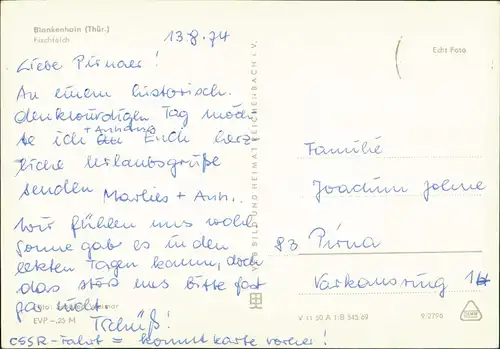 Blankenhain (Thür.)
Fischteich
13.8.74
Liebe Pirnaer!
An einem historisch.
denkwürdigen Tag möch
te ich + Anhang Euch herz
liche Urlaubsgrüße
senden Marlies + Anh..
Wir fühlen uns wohl,
Sonne gab es in den
letzten Tagen kaum, doch
das stört uns bitte fast
gar nicht
Tschüß!
EVP –,25 M
CSSR-Fahrt = kommt Karte vorher!
VEB BILD UND HEIMAT REICHENBACH I. V.
Echt Foto
Familie
Joachim
83 Pirna
Varkausring
V 11 50 A 1/B 543/69
9/2796